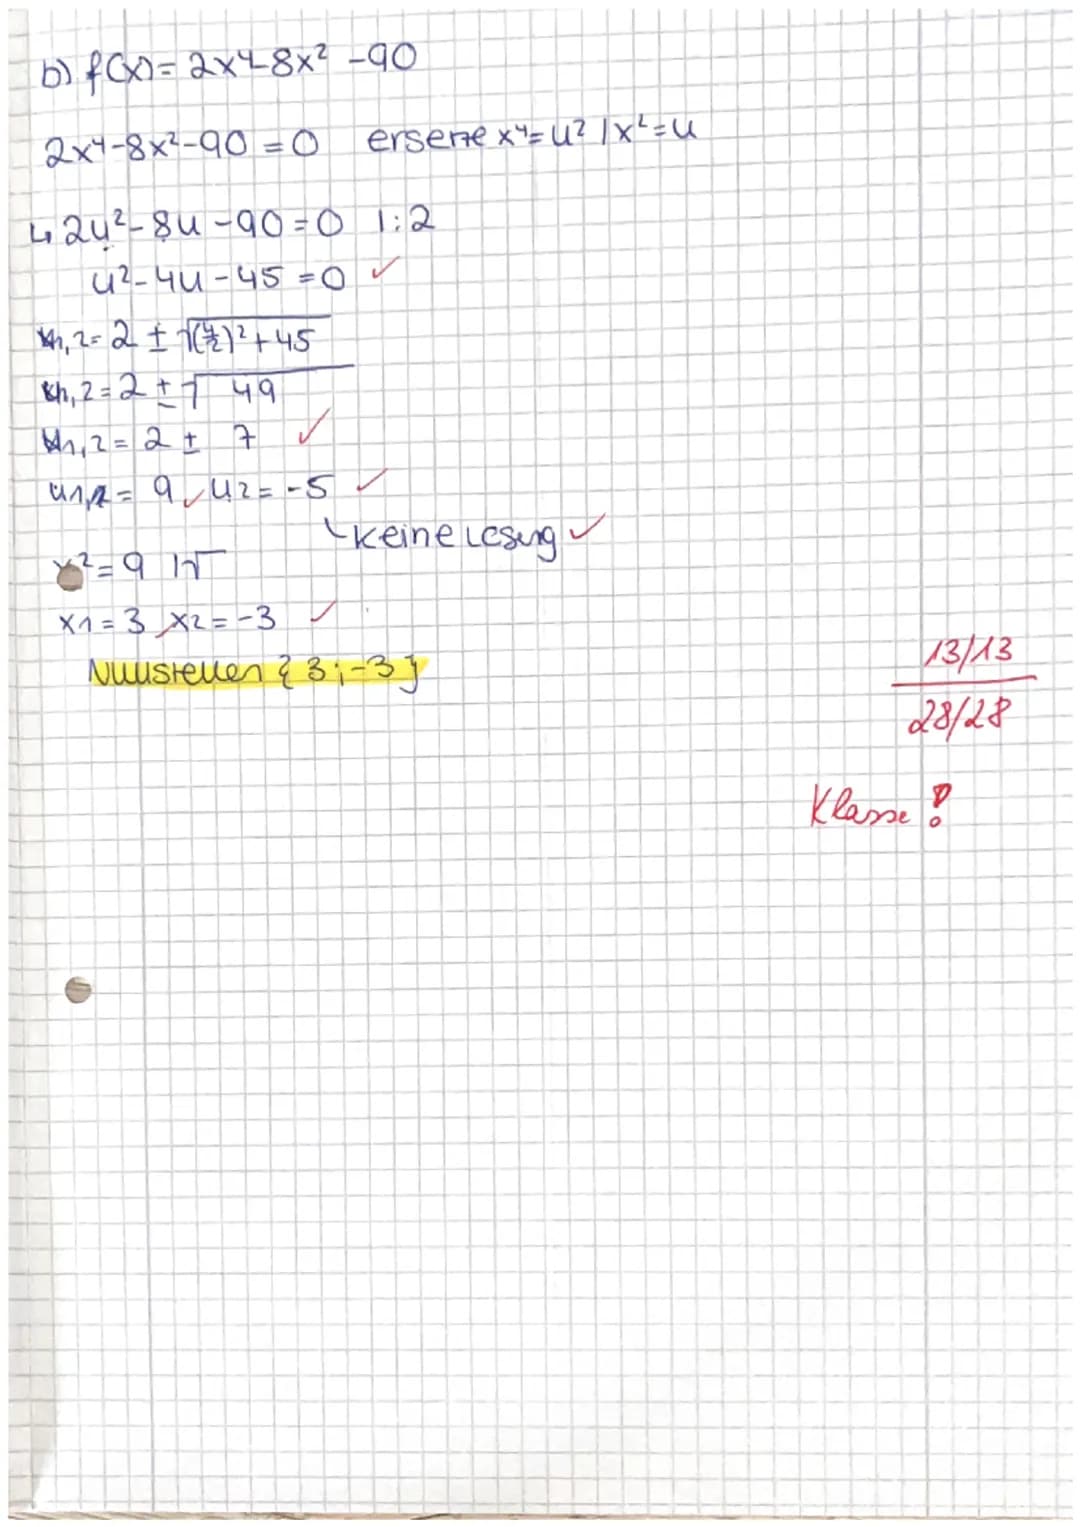 b) f(x) = 2x4-8x² -90
2x⁴-8x²-90 = 0 ersetze x⁴= u² / x²=u
↳ 2u²-8u -90 = 0 |:2
u²-4u-45 = 0 ✓
u1,2= 2 ± √(4/2)²+45
u1,2 = 2 ± √49
u1,2 = 2 ± 7 ✓
u1 = 9 ✓ u2 = -5 ✓
keine Lösung ✓
x² = 9 |√
x1 = 3 x2 = -3 ✓
Nullstellen { 3 ; -3 }
13/13
28/28
Klasse!